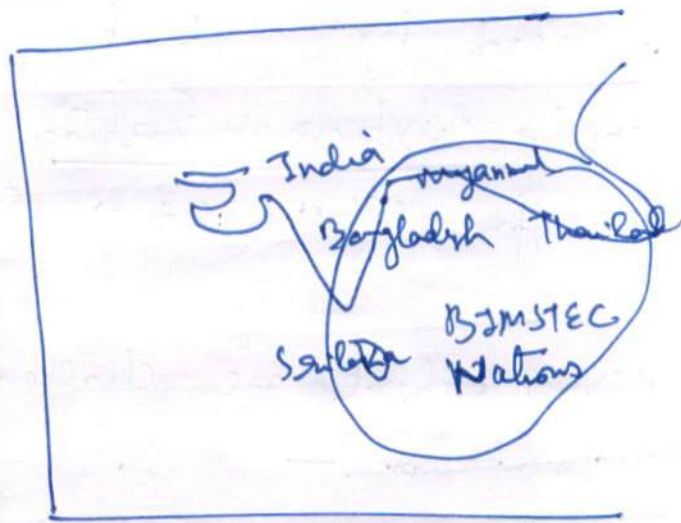 India
Myanmar
Bangladesh Thailand
Srilanka
BIMSTEC
Nations